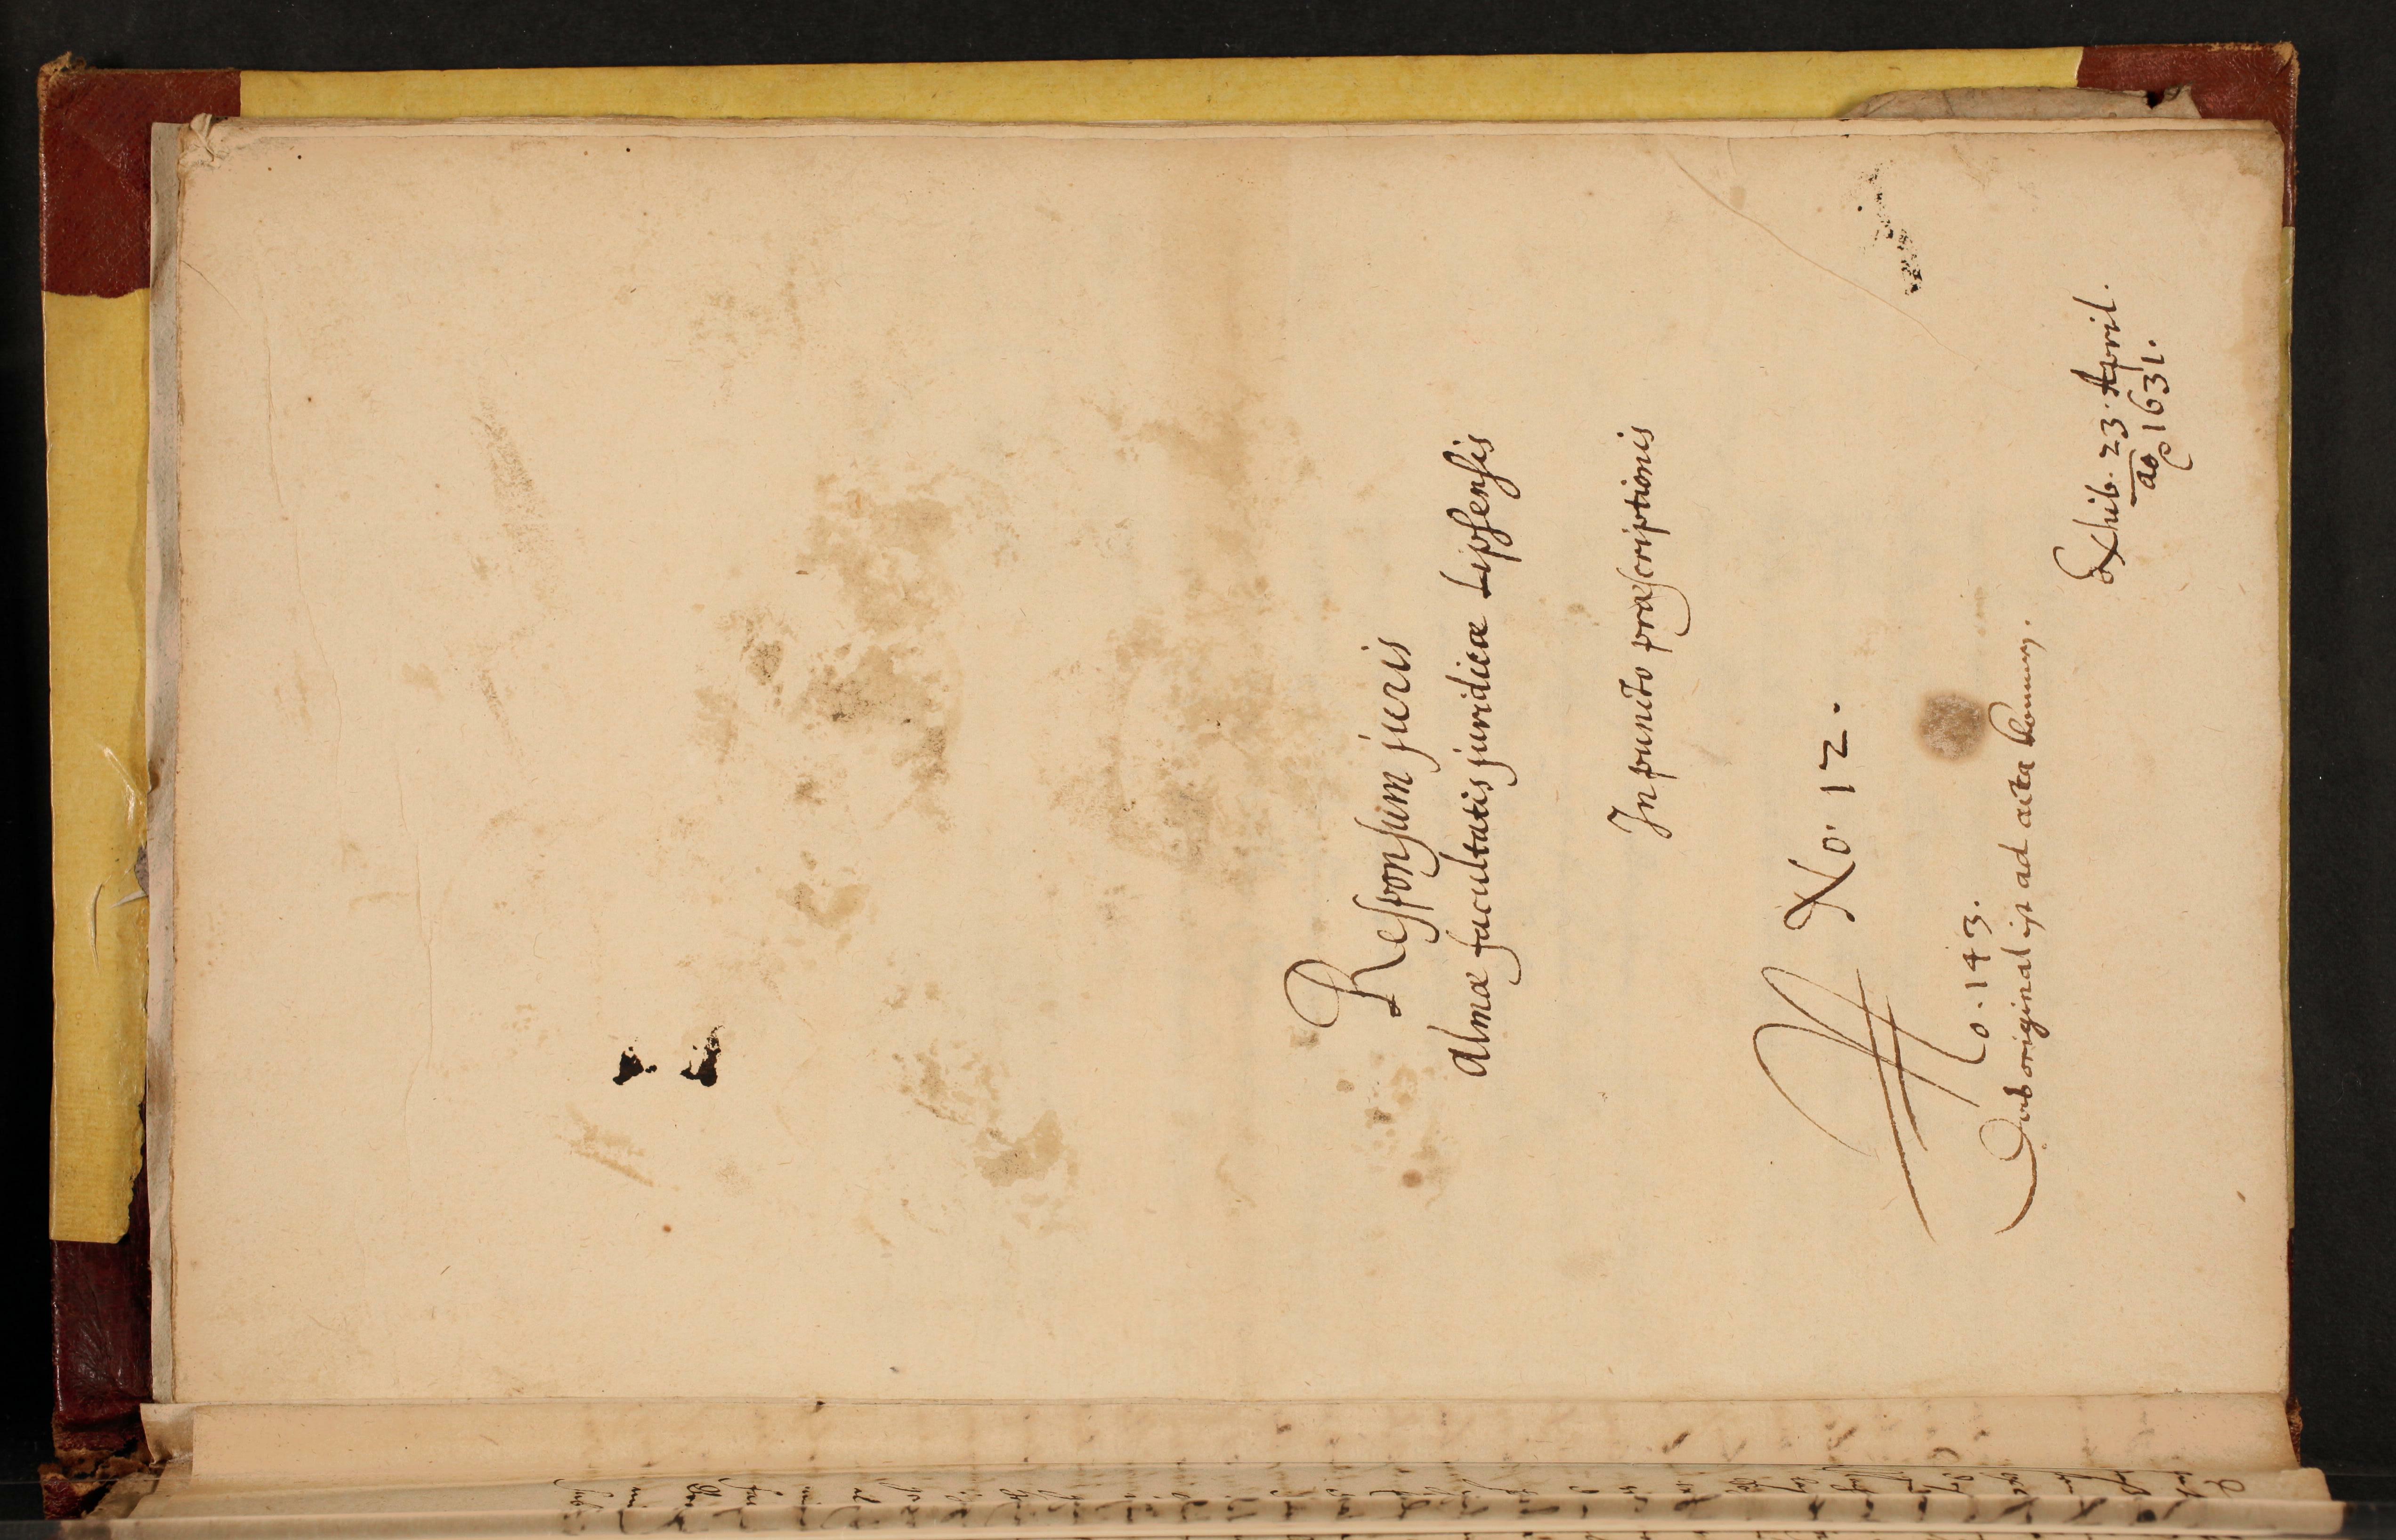 Responsum juris
almæ facultatis juridicæ Lipsensis
In puncto præscriptionis
No. 12.
No. 143.
Das original ist ad acta kommen.
Exhib. 23. April.
ao 1631.